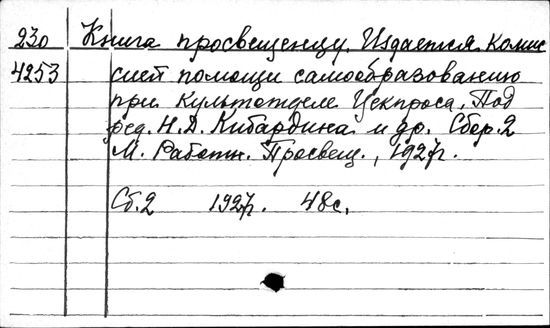 230 Книга просвещенцу. Издается комис
4253 сией помощи самообразованию
при Культотделе Цекпроса. Под
ред. Н.Д. Кибардина и др. Сбор. 2
М. Работн. Просвещ., 1927г.
Сб. 2 1927г. 48с.